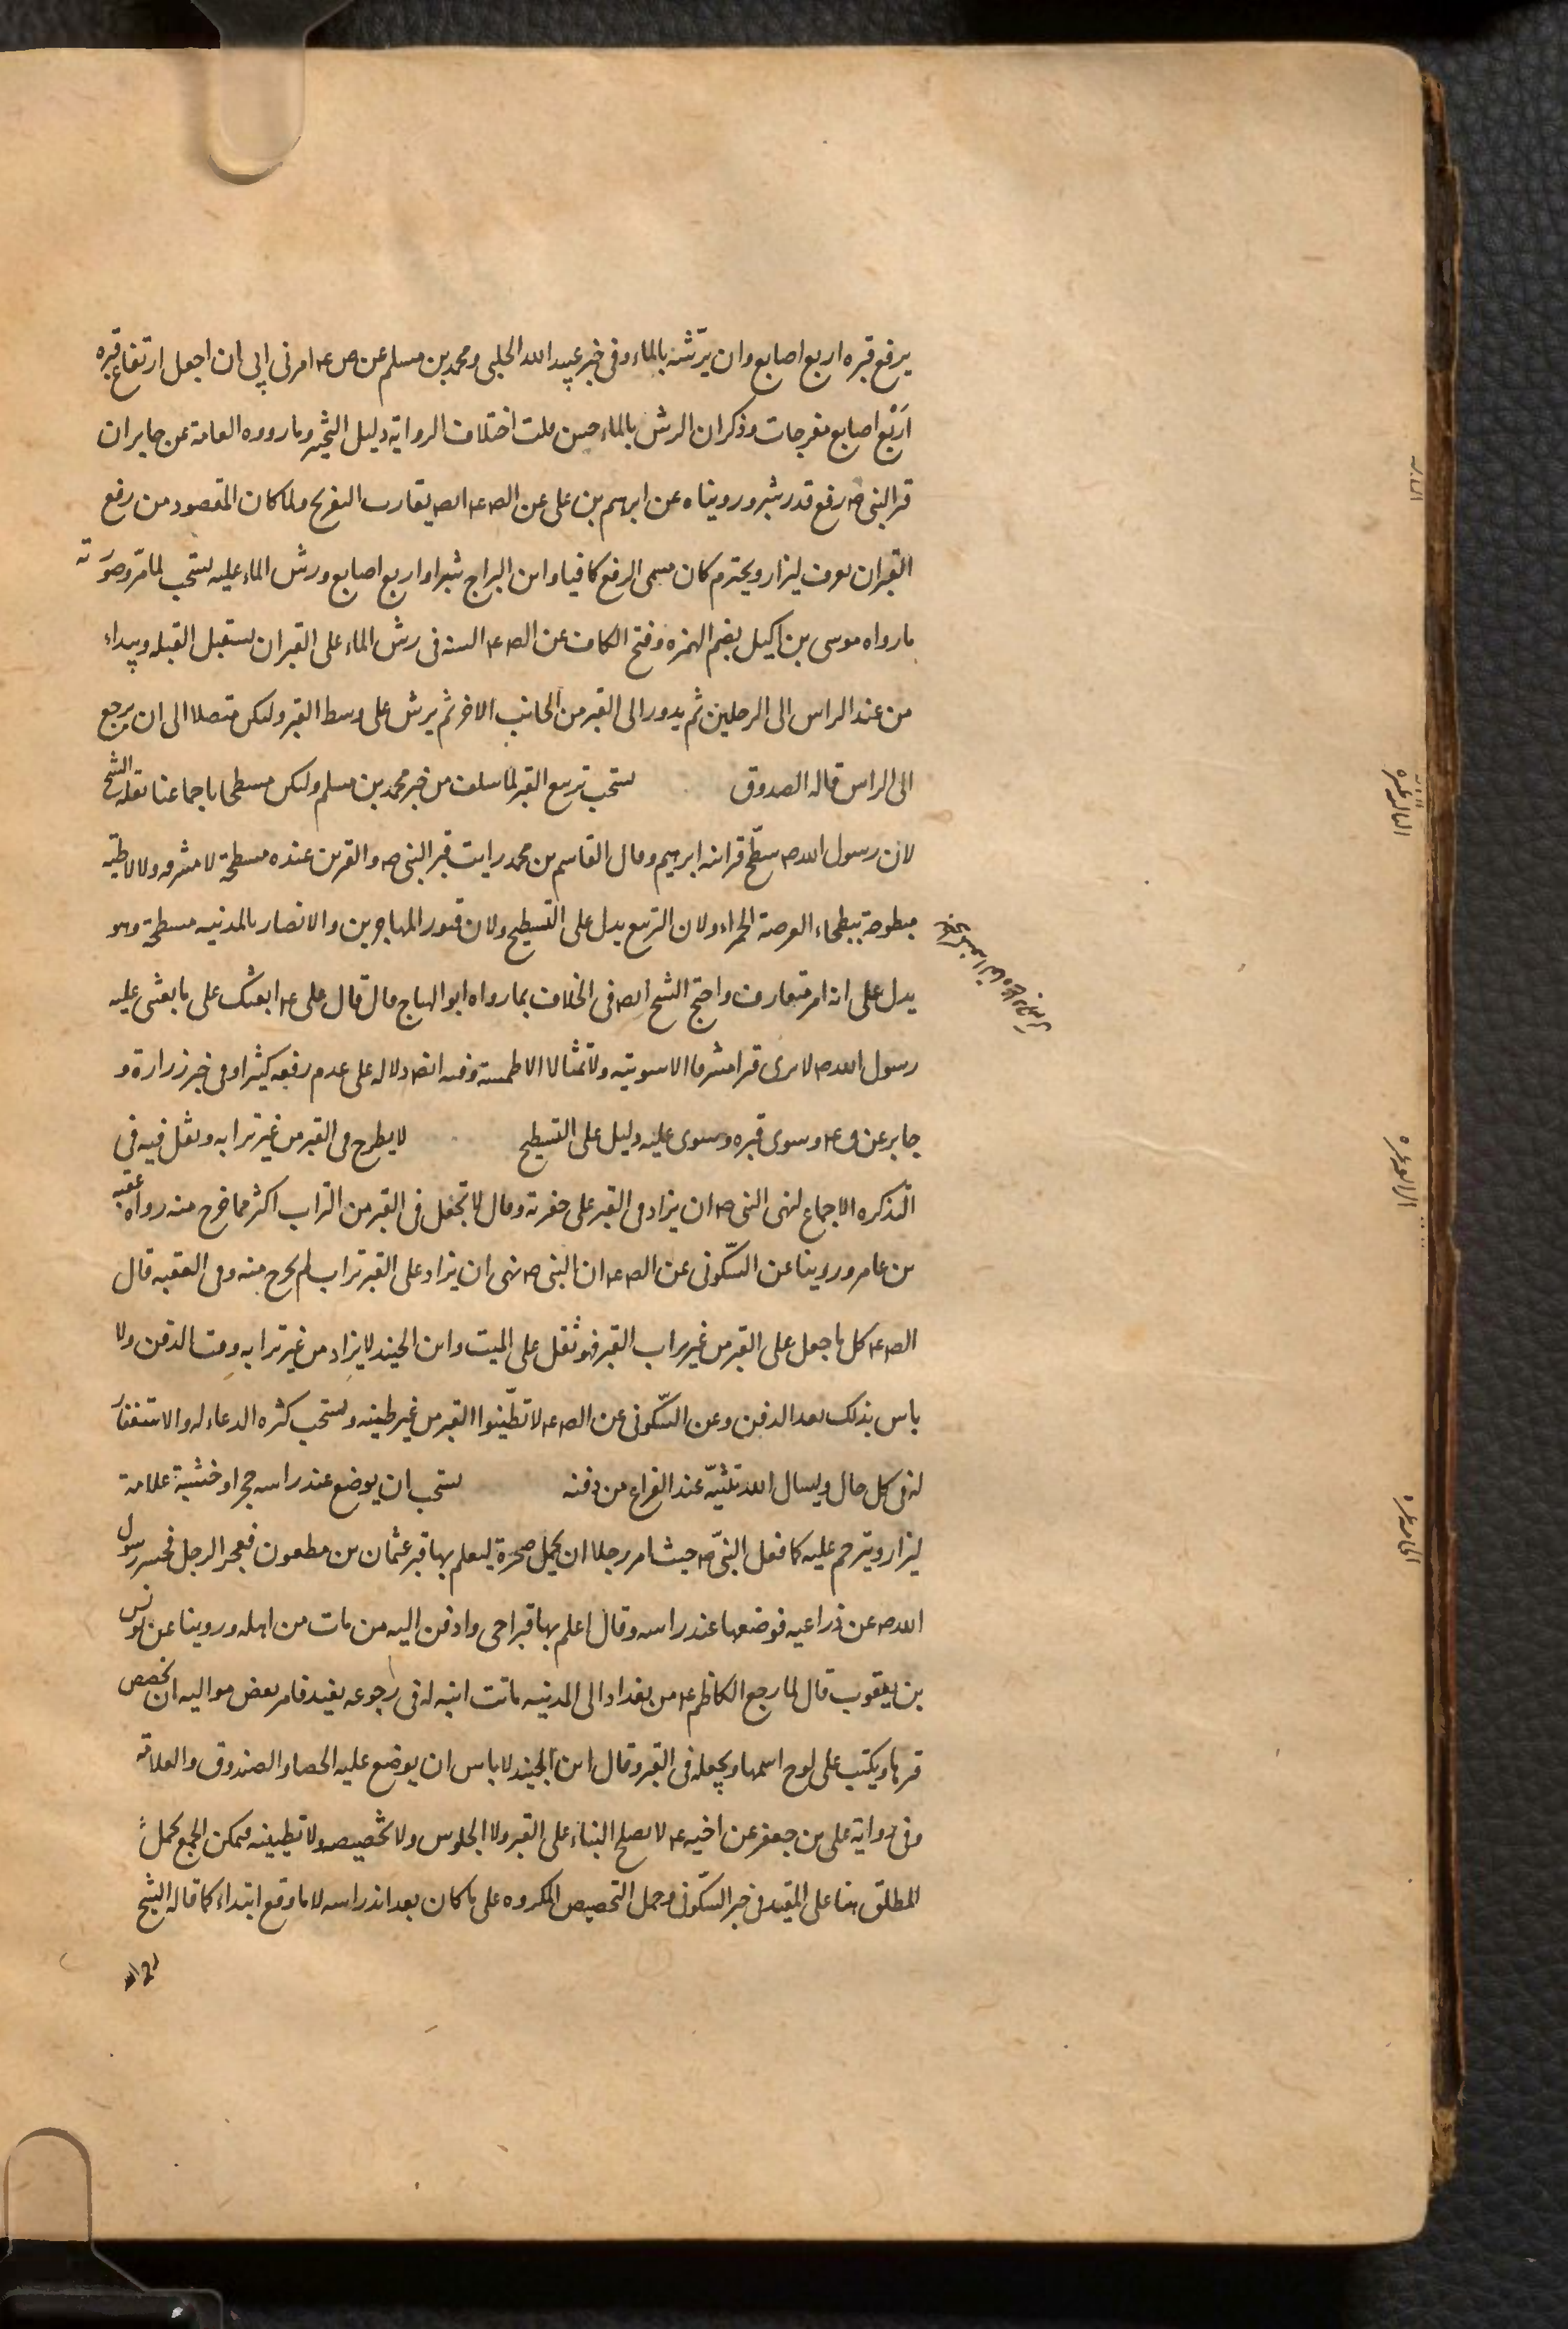 يرفع قبره اربع اصابع وان يرّشه بالماء وفى خبر عبيد الله الحلبى ومحمد بن مسلم عن ص ع امرنى ابى ان اجعل ارتفاع قبره
اَرْبع اصابع مفرجات وذكر ان الرش بالماء حسن قلت اختلاف الرواية دليل التخير وما رووه العامة عن جابر ان
قبر النبى ص رفع قدر شبر ورويناه عن ابرهيم بن على عن الص ع ايض يقارب التفريج ولما كان المقصود من رفع
القبر ان يعرف ليزار ويحترم كان مسمى الرفع كافيا وابن البراج شبرا واربع اصابع ورش الماء عليه يستحب لما مرّ وصورته
ما رواه موسى بن اكيل بضم الهمزه وفتح الكاف عن الص ع السنه فى رش الماء على القبر ان يستقبل القبله ويبداء
من عند الراس الى الرجلين ثم يدور الى القبر من الجانب الاخر ثم يرش على وسط القبر وليكن متصلا الى ان يرجع
الى الراس قاله الصدوق يستحب تربيع القبر لما سلف من خبر محمد بن مسلم وليكن مسطحا باجماعنا نقله الشيخ
لان رسول الله ص سطّح قبر ابنه ابرهيم وقال القاسم بن محمد رايت قبر النبى ص والقبرين عنده مسطحة لا مشرفه ولا لاطيه
مبطوحة ببطحاء العرصة الحمراء ولان التربيع يدل على التسطيح ولان قبور المهاجرين والانصار بالمدنيه مسطحة وهو
يدل على انه امر متعارف واحتج الشيخ ايض فى الخلاف بما رواه ابو الهياج قال قال على ع ابعثك على ما بعثنى عليه
رسول الله ص لا يرى قبرا مشرفا الا سويته ولا تمثالا الا طمسته وفيه ايض دلاله على عدم رفعه كثيرا وفى خبر زرارة و
جابر عن ق ع وسوى قبره وسوى عليه دليل على التسطيح لا يطرح فى القبر من غير ترابه ونقل فيه فى
التذكره الاجماع لنهى النبى ص ان يزاد فى القبر على حفرته وقال لا تجعل فى القبر من التراب اكثر مما خرج منه رواه عقبه
بن عامر وروينا عن السّكونى عن الص ع ان النبى ص نهى ان يزاد على القبر تراب لم يخرج منه وفى الفقيه قال
الص ع كل ما جعل على القبر من غير تراب القبر فهو ثقل على الميت وابن الجنيد لا يزاد من غير ترابه وقت الدفن ولا
باس بذلك بعد الدفن وعن السّكونى عن الص ع لا تطّينوا القبر من غير طينه ويستحب كثره الدعاء له والاستغفار
له فى كل حال ويسال الله تثبيّته عند الفراغ من دفنه يستحب ان يوضع عند راسه حجر او خشبة علامة
ليزار ويترحم عليه كما فعل النبىّ ص حيث امر رجلا ان يحمل صخرة ليعلم بها قبر عثمان بن مظعون فعجز الرجل فحسر رسول
الله ص عن ذراعيه فوضعها عند راسه وقال اعلم بها قبر اخى وادفن اليه من مات من اهله وروينا عن يونس
بن يعقوب قال لما رجع الكاظم ع من بغداد الى المدنيه ماتت ابنه له فى رجوعه بفيد فامر بعض مواليه ان يجصص
قبرها ويكتب على لوح اسمها ويجعله فى القبر وقال ابن الجنيد لا باس ان يوضع عليه الحصا والصندوق والعلامه
وفى رواية على بن جعفر عن اخيه ع لا يصلح البناء على القبر ولا الجلوس ولا تجصيصه ولا تطيينه فيمكن الجمع بحمل
المطلق هنا على المقيد فى خبر السّكونى وحمل التجصيص المكروه على ما كان بعد اندراسه لا ما وقع ابتداء كما قاله الشيخ